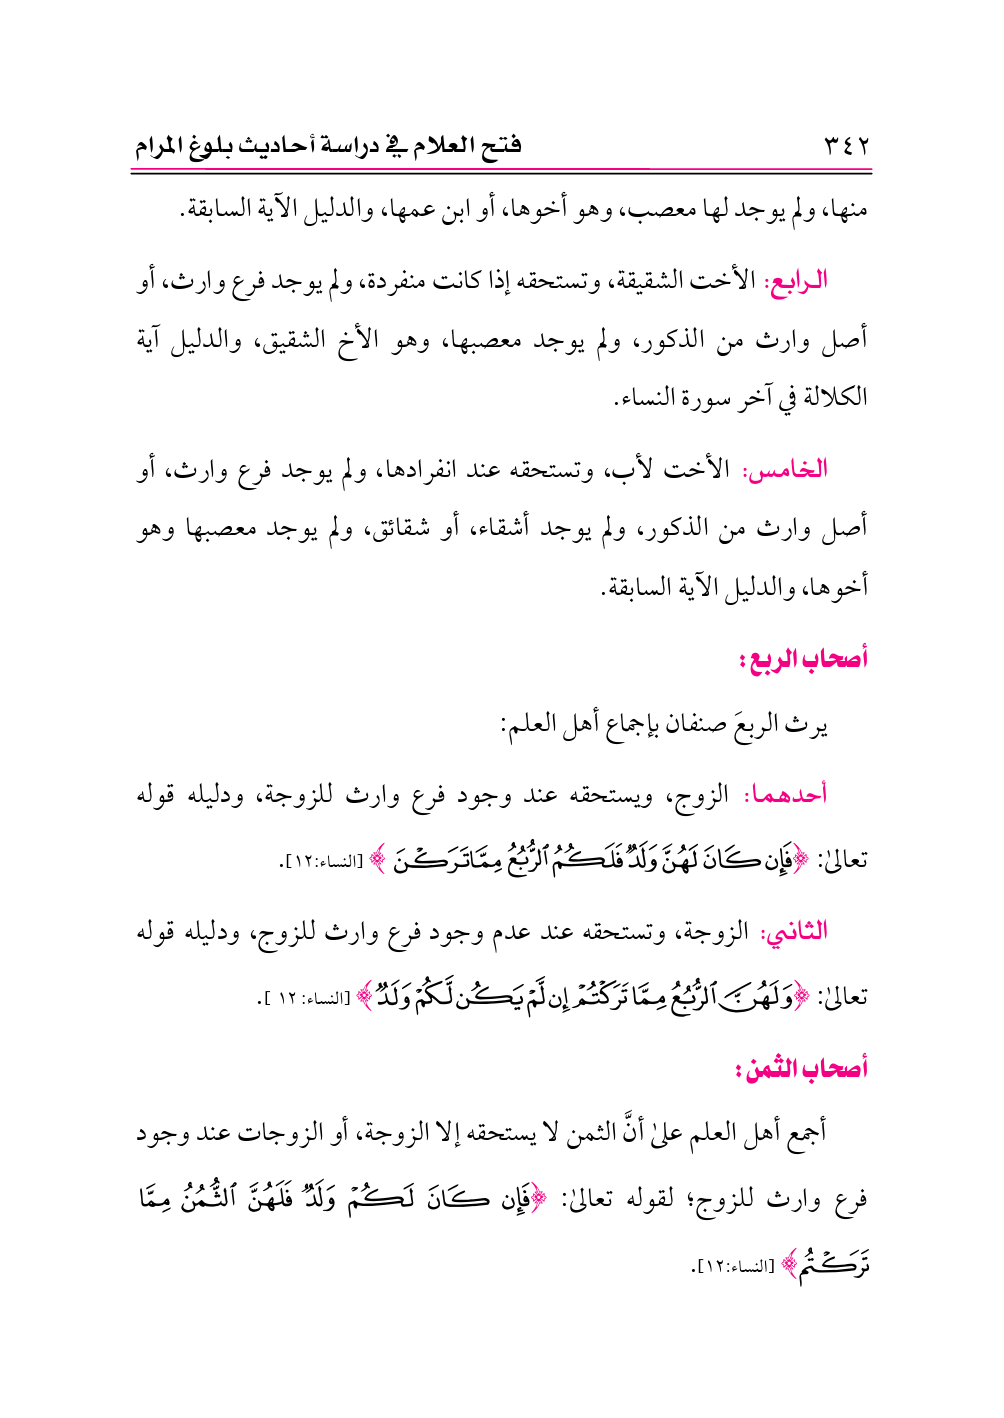 ٣٤٢ فتح العلام في دراسة أحاديث بلوغ المرام
منها، ولم يوجد لها معصب، وهو أخوها، أو ابن عمها، والدليل الآية السابقة.
الرابع: الأخت الشقيقة، وتستحقه إذا كانت منفردة، ولم يوجد فرع وارث، أو
أصل وارث من الذكور، ولم يوجد معصبها، وهو الأخ الشقيق، والدليل آية
الكلالة في آخر سورة النساء.
الخامس: الأخت لأب، وتستحقه عند انفرادها، ولم يوجد فرع وارث، أو
أصل وارث من الذكور، ولم يوجد أشقاء، أو شقائق، ولم يوجد معصبها وهو
أخوها، والدليل الآية السابقة.
أصحاب الربع:
يرث الربعَ صنفان بإجماع أهل العلم:
أحدهما: الزوج، ويستحقه عند وجود فرع وارث للزوجة، ودليله قوله
تعالىٰ: ﴿فَإِن كَانَ لَهُنَّ وَلَدٌ فَلَكُمُ ٱلرُّبُعُ مِمَّا تَرَكْنَ﴾ [النساء:١٢].
الثاني: الزوجة، وتستحقه عند عدم وجود فرع وارث للزوج، ودليله قوله
تعالىٰ: ﴿وَلَهُنَّ ٱلرُّبُعُ مِمَّا تَرَكْتُمْ إِن لَّمْ يَكُن لَّكُمْ وَلَدٌ﴾ [النساء: ١٢ ].
أصحاب الثمن:
أجمع أهل العلم علىٰ أنَّ الثمن لا يستحقه إلا الزوجة، أو الزوجات عند وجود
فرع وارث للزوج؛ لقوله تعالىٰ: ﴿فَإِن كَانَ لَكُمْ وَلَدٌ فَلَهُنَّ ٱلثُّمُنُ مِمَّا
تَرَكْتُم﴾ [النساء:١٢].